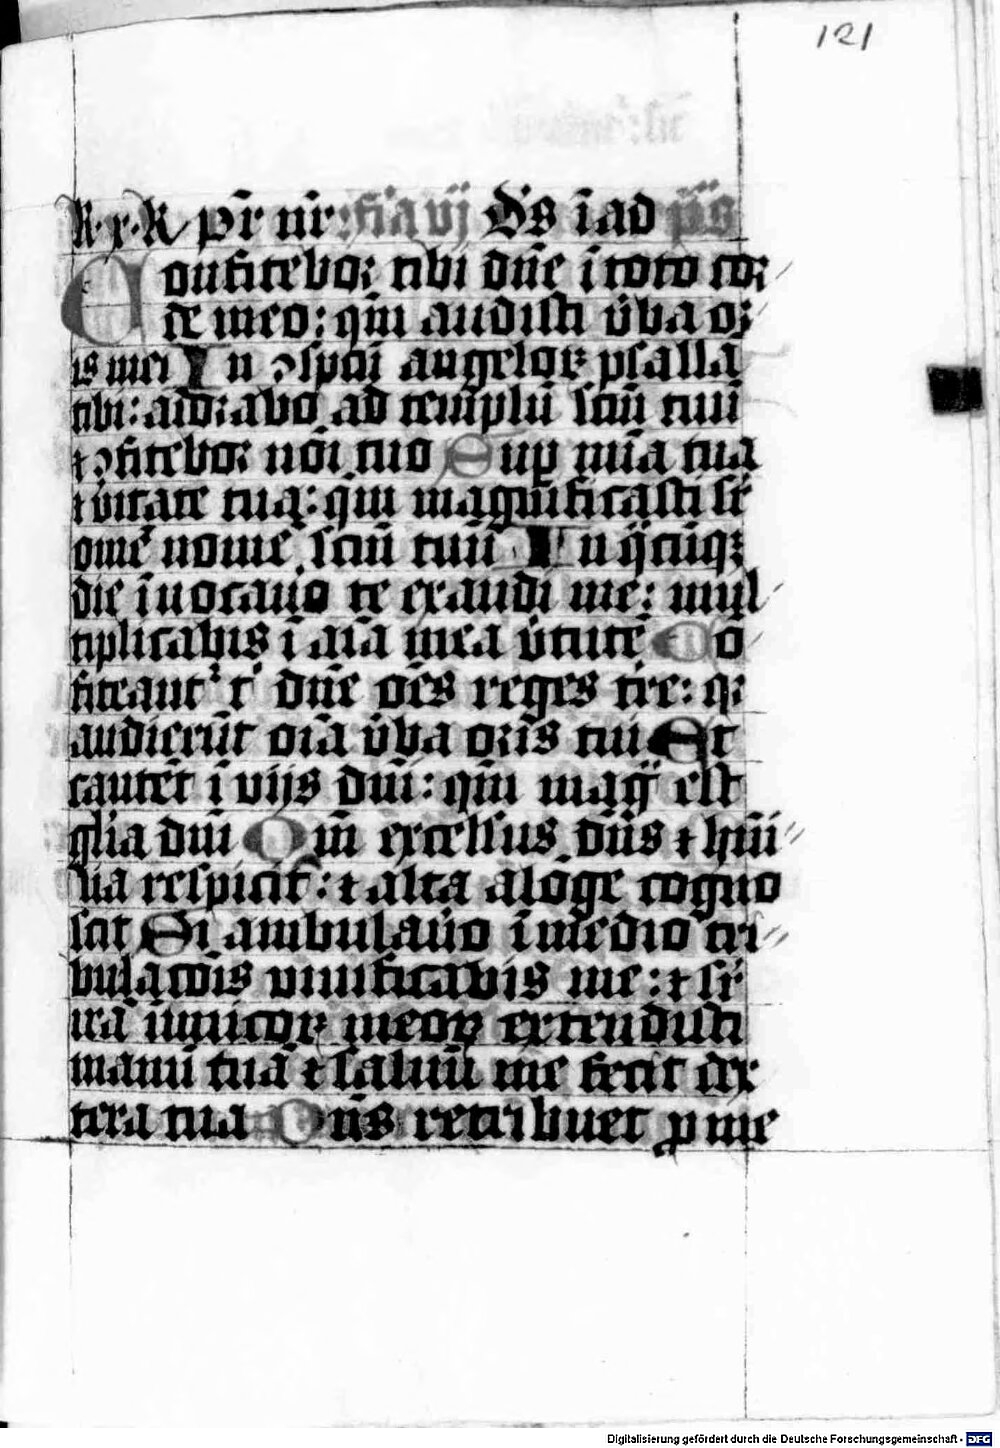 121
k. x. k. pr̄ nr̄: fia vj Ds̄ ī ad ps̄
Confitebor tibi dn̄e ī toto cor
de meo: qm̄ audisti v̄ba or
is mei In ɔspcū angelorꝝ psallā
tibi: adorabo ad templū scm̄ tuū
⁊ ɔfitebor noī tuo Sup mīa tua
⁊ v̄itate tua: qm̄ magnificasti sr̄
ome nome scm̄ tuū In q̄cūqꝫ
die īuocauo te exaudi me: mul
tiplicabis ī aīa mea v̄tutē Cō
fiteant̉ t̉ dn̄e oēs reges tr̄e: qr
audierūt oīa v̄ba oris tui Et
cantēt ī vijs dn̄i: qm̄ mag̊ est
glīa dn̄i Qm̄ excelsus dn̄s ⁊ hūi
lia respicit: ⁊ alta a lōge cogno
scit Si ambulauo ī medio tri
bulacōis viuificabis me: ⁊ sr̄
irā īimicorꝝ meorꝝ extendisti
manū tuā ⁊ saluū me fecit dex
tera tua Dn̄s retribuet p me
Digitalisierung gefördert durch die Deutsche Forschungsgemeinschaft - DFG